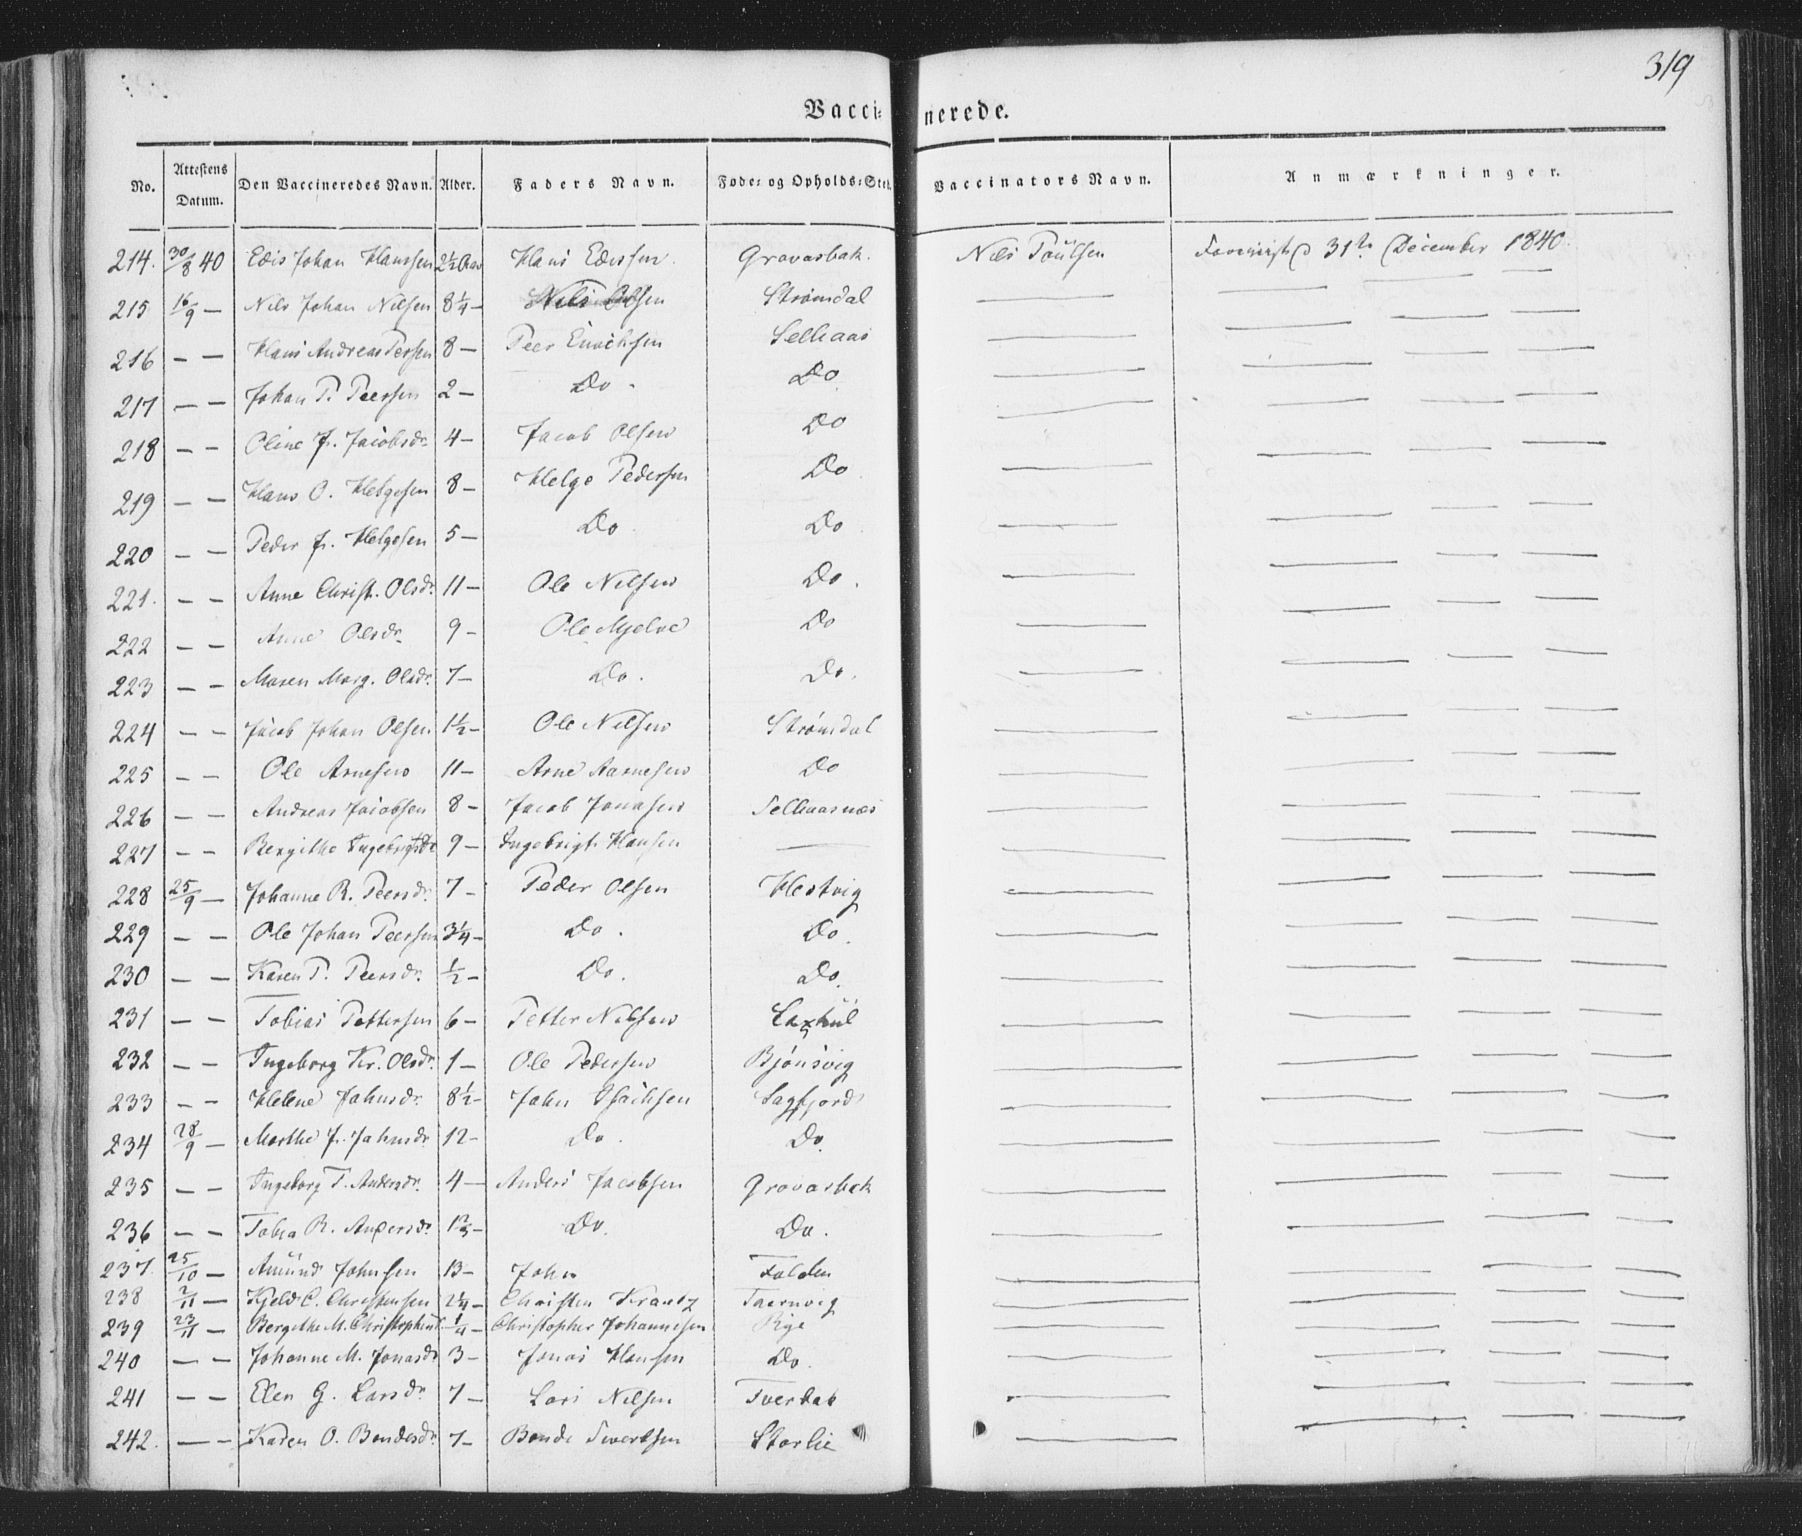 319
Vacci- nerede.
No. Attestens Datum. Den Vaccineredes Navn. Alder. Faders Navn. Føde- og Opholds-Sted. Vaccinators Navn. Anmærkninger.
214. 30/8 40 Edis Johan Hanssen 2½ Aar Hans Edissen. Gravarbak. Nils Paulsen 31te December 1840.
215 16/9 — Nils Johan Nilsen 8¼ — Nils Olsen Strømdal — — — —
216 — — Hans Andreas Persen 8 — Peer Selhaas — — — —
217 — — Johan P. Peersen 2 — Do. Do. — — — —
218 — — Oline J. Jacobsdr. 4 — Jacob Olsen Do — — — —
219 — — Hans O. Helgesen 8 — Helge Pedersen Do — — — —
220 — — Peder J. Helgesen 5 — Do Do — — — —
221. — — Anne Christ. Olsdr. 11 — Ole Nilsen Do. — — — —
222 — — Anne Olsdr. 9 — Ole Mjelve Do — — — —
223 — — Maren Marg. Olsdr. 7 — Do. Do. — — — —
224 — — Jacob Johan Olsen 1½ — Ole Nilsen Strømdal — — — —
225 — — Ole Arnesen 11 — Arne Aarnesen Do — — — —
226 — — Andreas Jacobsen 8 — Jacob Jonasen Selhaasnæs — — — —
227 — — Bergithe Ingebrigtsdr 9 — Ingebrigt Hansen — — — — —
228 25/9 — Johanne R. Peersdr. 7 — Peder Olsen Hestvig — — — —
229 — — Ole Johan Peersen 3¼ — Do. Do. — — — —
230 — — Karen P. Peersdr. ½ — Do. Do. — — — —
231 — — Tobias Pettersen 6 — Petter Nilsen — — — —
232 — — Ingeborg Kr. Olsdr. 1 — Ole Pedersen Bjønsvig — — — —
233 — — Helene Johnsdr. 8½ — John Isachsen Sagfjord — — — —
234 28/9 — Marthe J. Johnsdr 12 — Do. Do. — — — —
235 — — Ingeborg T. Andersdr. 4 — Anders Jacobsen Gravarbak — — — —
236 — — Tobia R. Andersdr. Do. Do. — — — —
237. 25/10 — Amund Johnsen 13 — John Folden — — — —
238 2/11 — Kjeld C. Christensen 2¼ — Christen Krantz Taernvig — — — —
239 23/11 — Bergithe M. Christophersd. ¼ — Christopher Johannesen Rige — — — —
240 — — Johanne M. Jonasdr 3 — Jonas Hansen Do. — — — —
241 — — Elen G. Larsdr. 7 — Lars Nilsen Tverbak — — — —
242. — — Karen O. Bendesdr. 7 — Bende Sivertsen Storlie — — — —